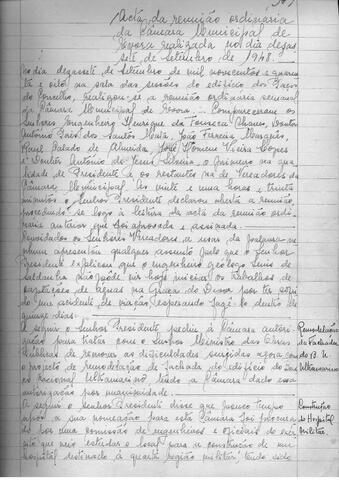 Acta da reunião ordinaria
da Câmara Municipal de
Evora realizada no dia dezas
sete de Setembro de 1948.
No dia dezassete de Setembro de mil novecentos e quaren
ta e oito na sala das sessões do edificio dos Paços
do Concelho, realizou-se a reunião ordinaria semanal
da Câmara Municipal de Evora. Compareceram os
Senhores Engenheiro Henrique da Fonseca Chaves, Doutor
António Pais dos Santos Mata, João Ferreira Marques,
Raul Salado de Almeida, José Homene Vieira Lopes
e Doutor António de Jesus Silveira, o primeiro na qua
lidade de Presidente e os restantes na de Vereadores da
Câmara Municipal. Ás vinte e uma horas e trinta
minutos o Senhor Presidente declarou aberta a reunião
procedendo-se logo á leitura da acta da reunião ordi
naria anterior que foi aprovada e assinada
Convidados os Senhores Vereadores a usar da palavra ne
nhum apresentou qualquer assunto pelo que o Senhor
Presidente explicou que o engenheiro geologo Luis de
Saldanha não pôde vir hoje iniciar os trabalhos de
captações de aguas na Graça do Divor por ter sofri
do um acidente de viação, esperando fazê-lo dentro de
quinze dias.
A seguir o Senhor Presidente pediu á Câmara autori
zação para tratar com o Senhor Ministro das Obras
Públicas de remover as dificuldades surgidas agora com
o projecto de remodelação da fachada do edificio do Ban
co Nacional Ultramarino tendo a Câmara dado essa
autorização por unanimidade.
Remodelação
da fachada
do B. N.
Ultramarino
A seguir o Senhor Presidente disse que pouco tempo
após a sua nomeação para esta Câmara foi procura
do por uma comissão de engenheiros e oficiais do exer
cito que veio estudar o local para a construção de um
hospital destinado á quarta região militar tendo sido
Construção
do Hospital
Militar